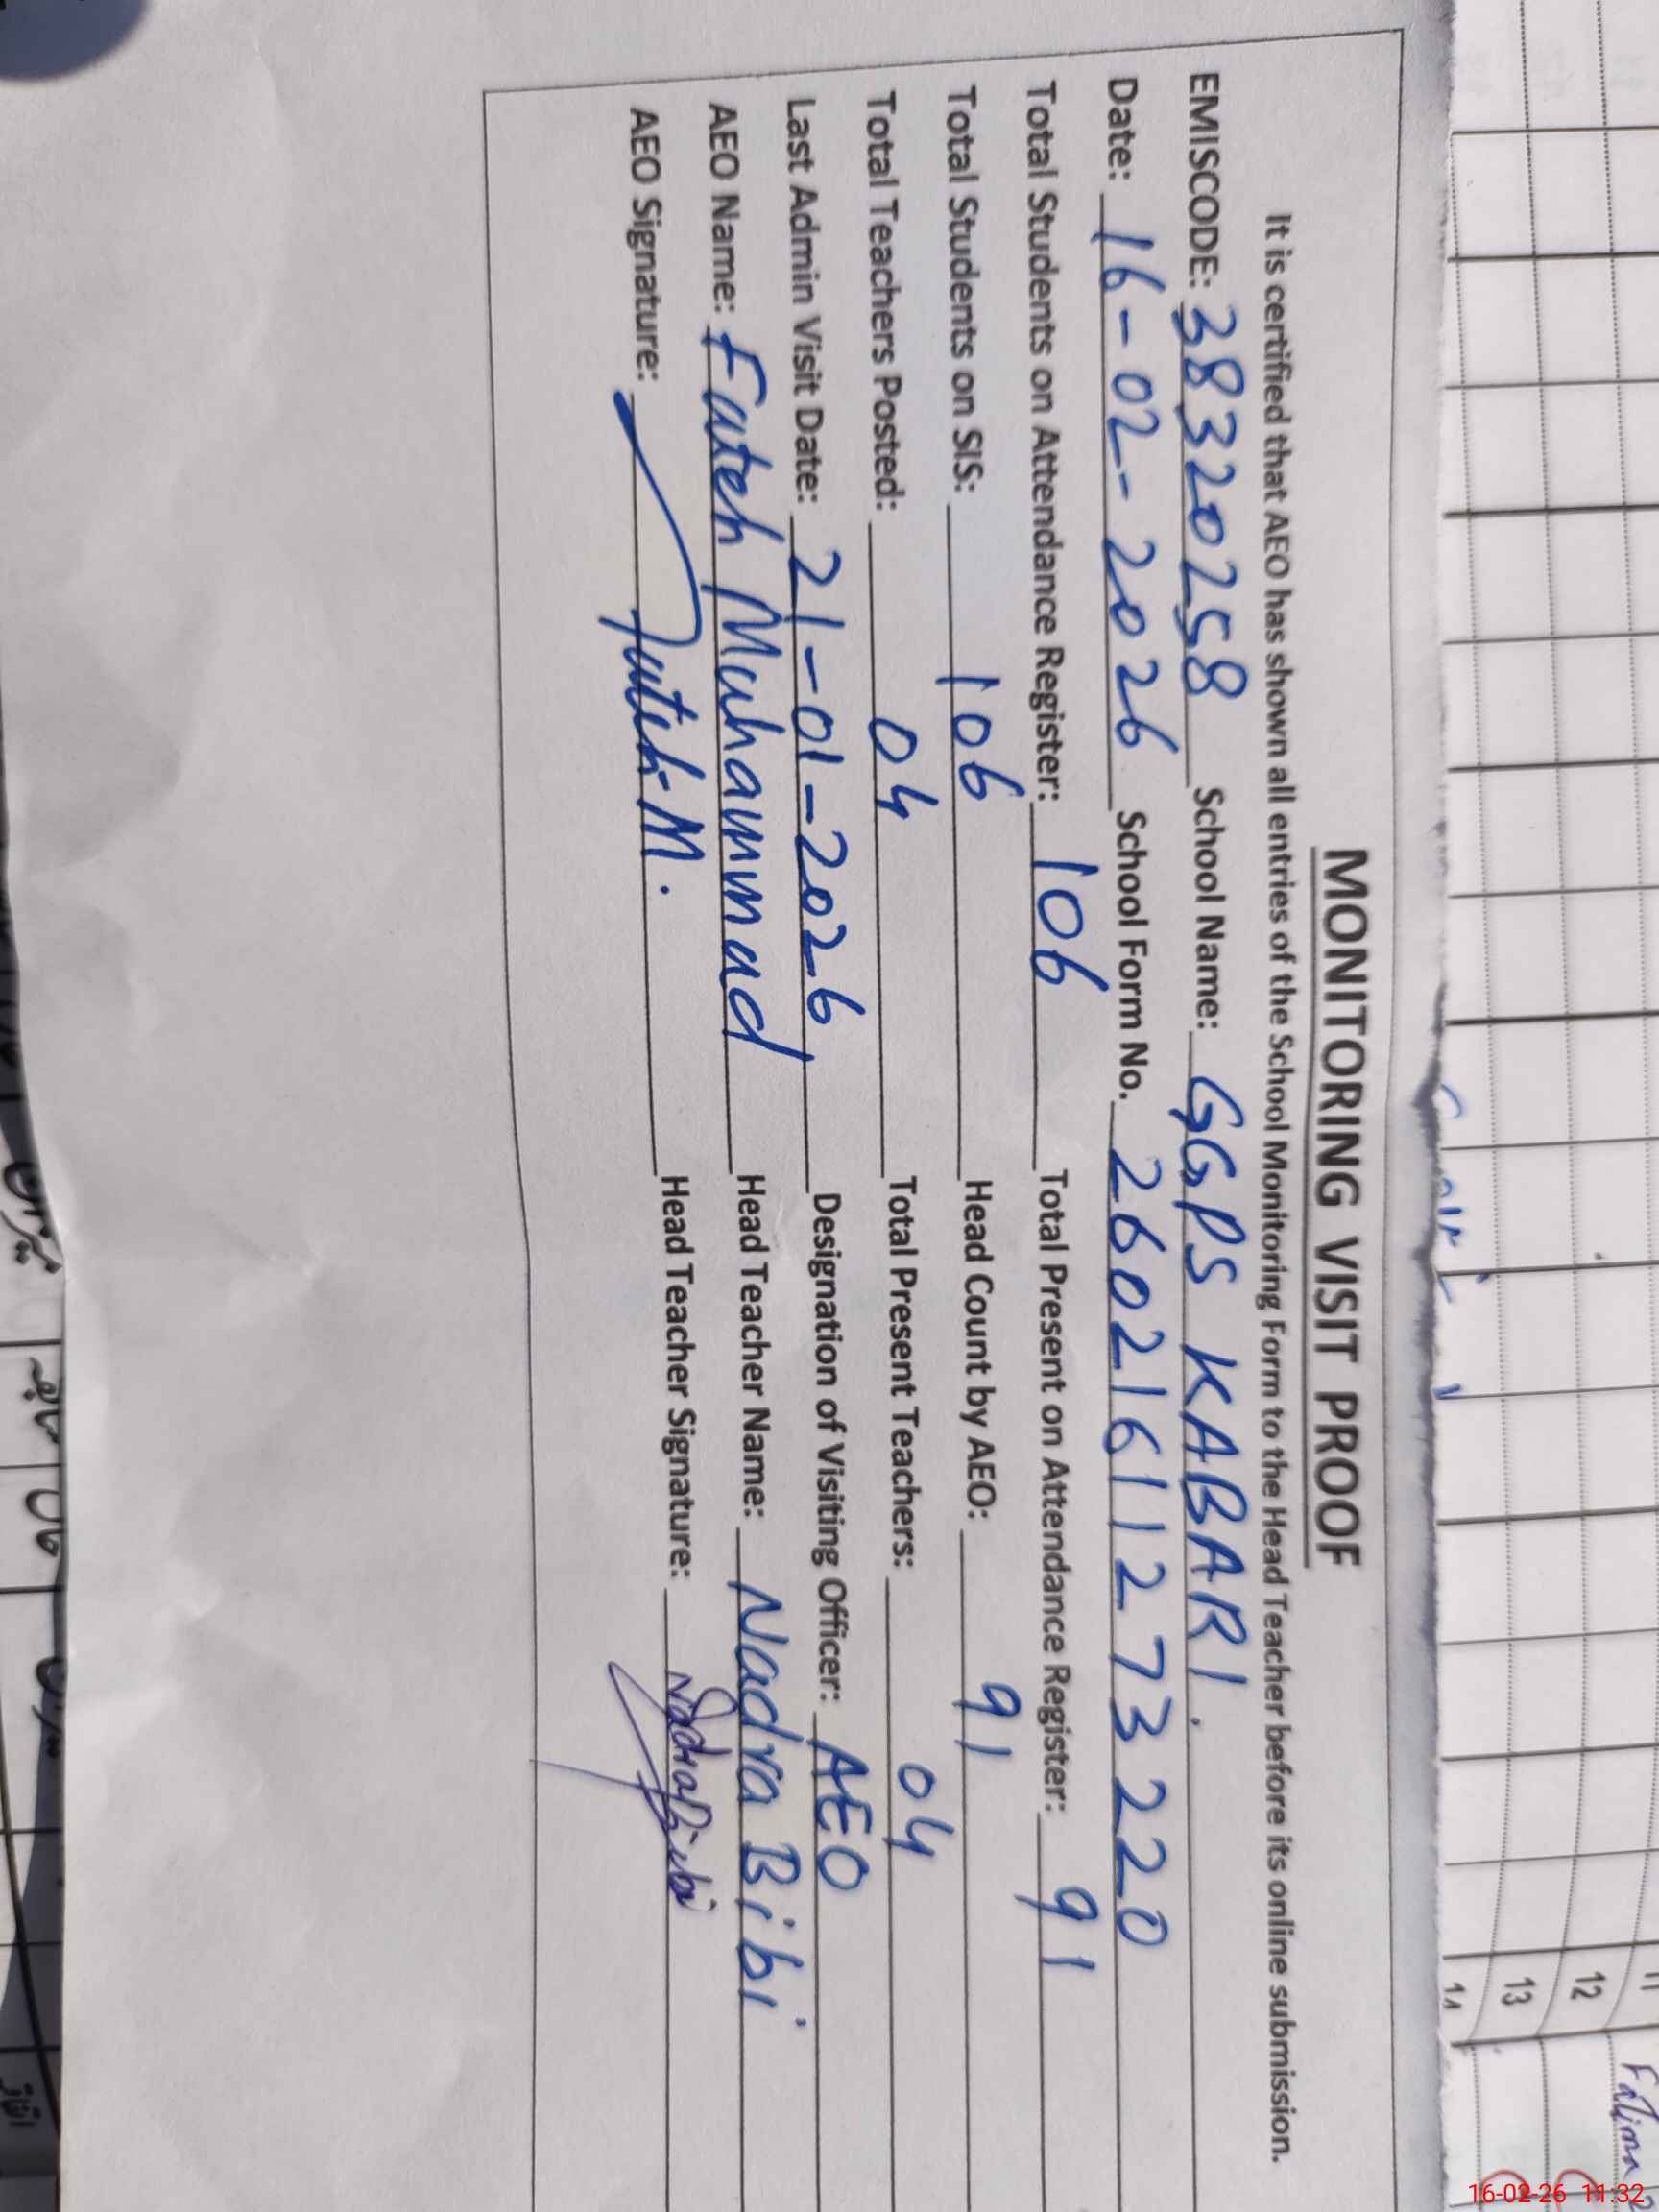 MONITORING VISIT PROOF
It is certified that AEO has shown all entries of the School Monitoring Form to the Head Teacher before its online submission.
EMISCODE: 38320258 School Name: GGPS KABARI.
Date: 16-02-2026 School Form No. 2602161127 3220
Total Students on Attendance Register: 106 Total Present on Attendance Register: 91
Total Students on SIS: 106 Head Count by AEO: 91
Total Teachers Posted: 04 Total Present Teachers: 04
Last Admin Visit Date: 21-01-2026 Designation of Visiting Officer: AEO
AEO Name: Fateh Muhammad Head Teacher Name: Nadra Bibi
AEO Signature: Fateh M. Head Teacher Signature: Nadra Bibi
12
13
14
Fatima
سابقہ
16-02-26 11:32